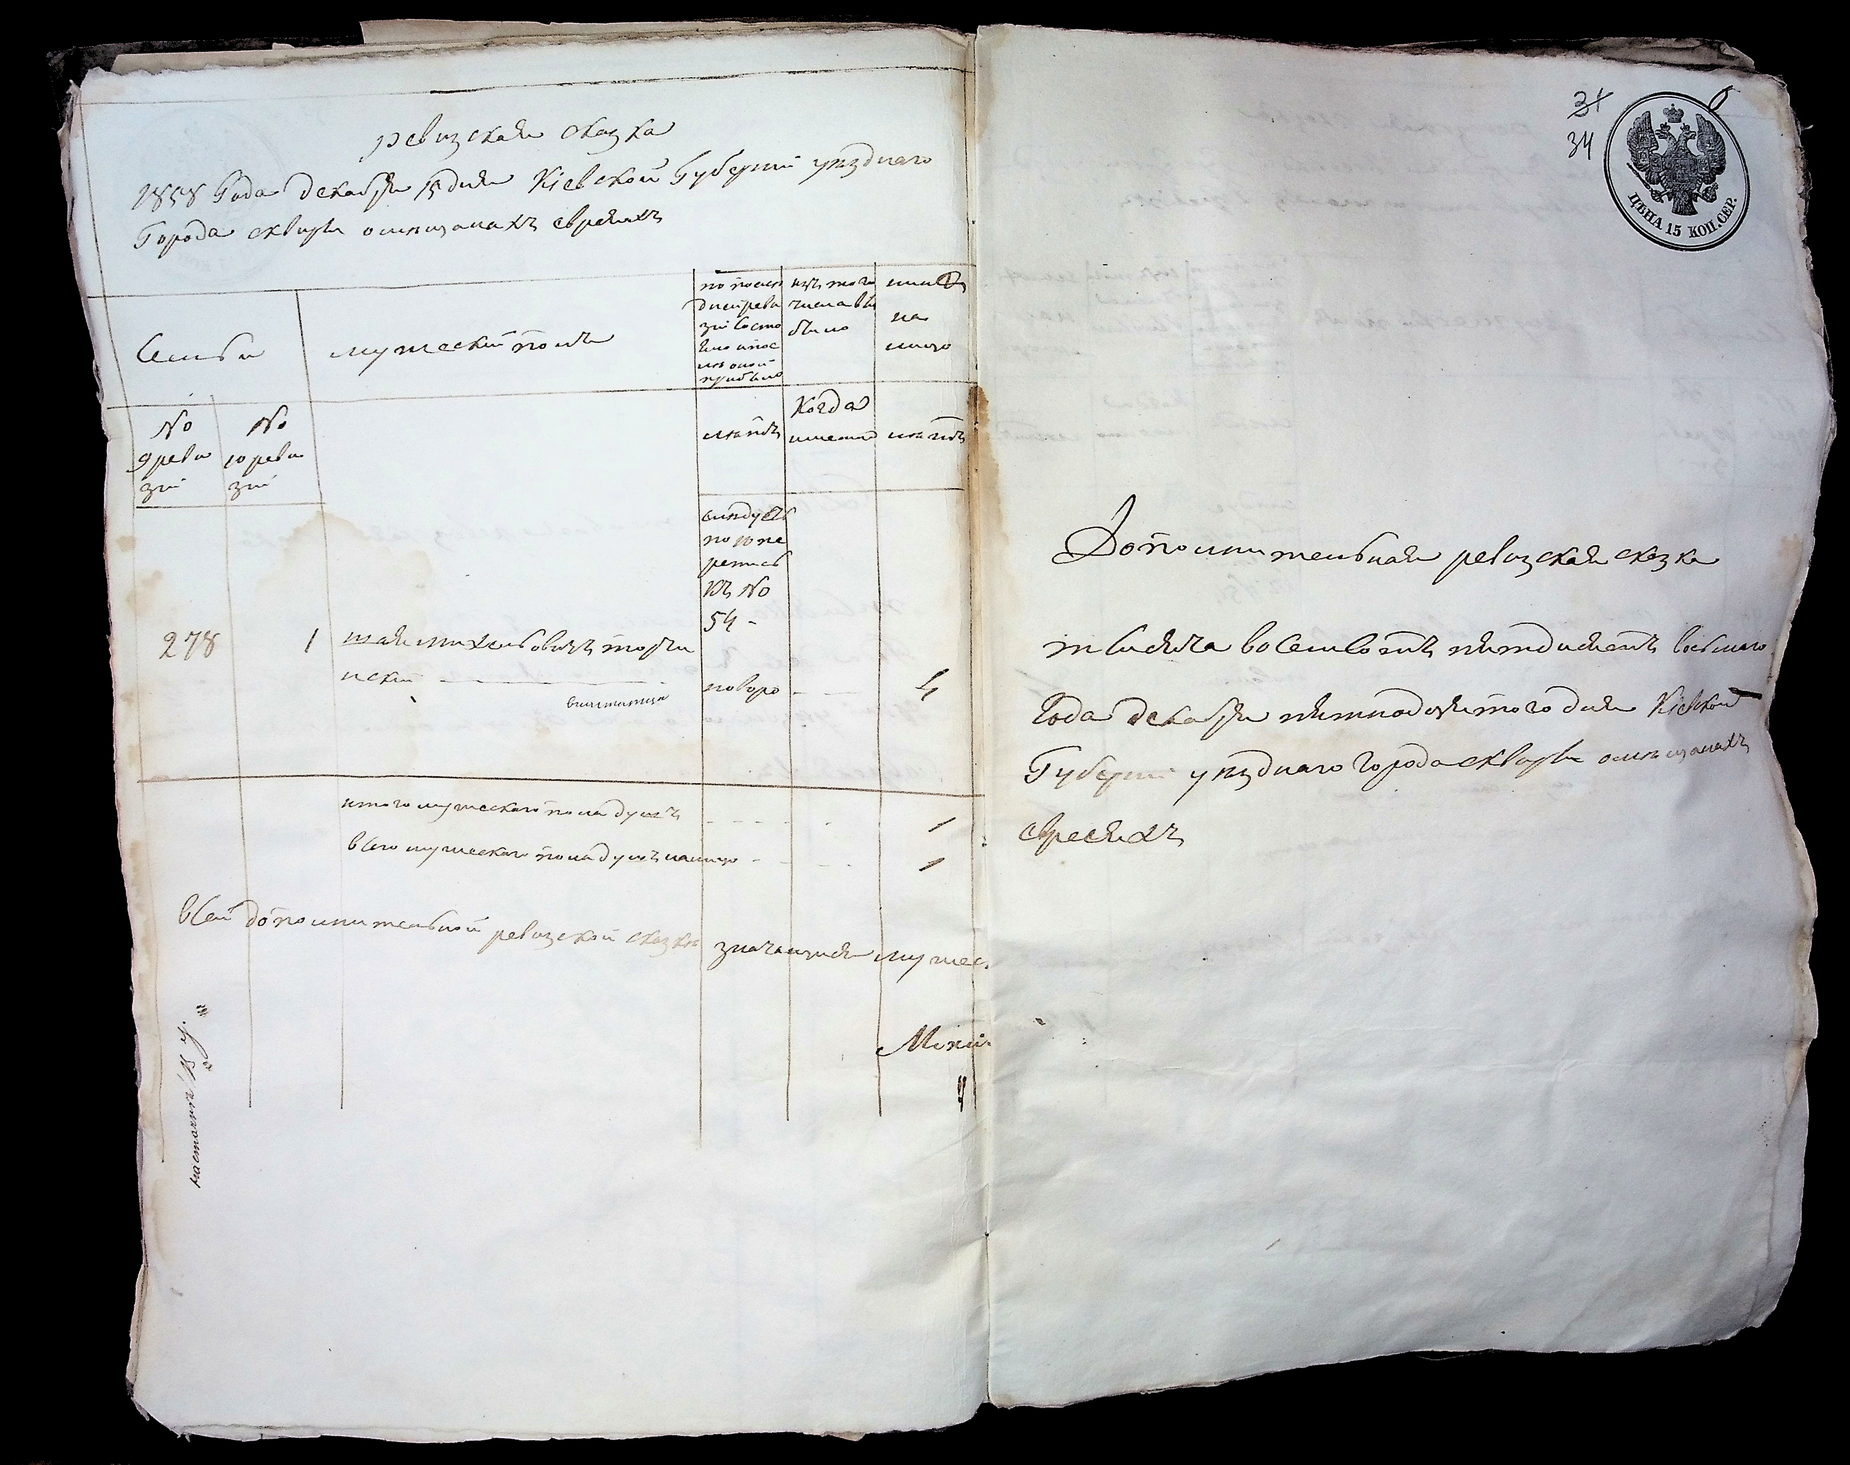 ревизская сказка
1858 Года декабря 15 дня Кіевской Губерніи уѣзднаго
Города сквиры омѣщанахъ евреяхъ
Семьи
мужескій полъ
по послѣ
дней реви
зіи состо
яло и пос
лѣ оной
прибыло
изъ того
числа вы
было
нынѣ
на
лицо
No
9 реви
зіи
No
10 реви
зіи
лѣтъ
Когда
именно
лѣтъ
слѣдуетъ
по 10 пе
реписи
къ No
54 -
278
1
шая михелевичъ торчи
нскій
новоро
4
итого мужескаго пола душъ
1
всего мужескаго пола душъ налицо
1
всей дополнительной ревизской сказкѣ значащися мужес.
31
34
6
ЦѢНА 15 КОП. СЕР.
Дополнительная ревизская сказка
тысяча восемьсотъ пятдисятъ восьмаго
Года декабря пятнадцятого дня Кіевской
Губерніи уѣзднаго города сквиры омѣщанахъ
евреяхъ